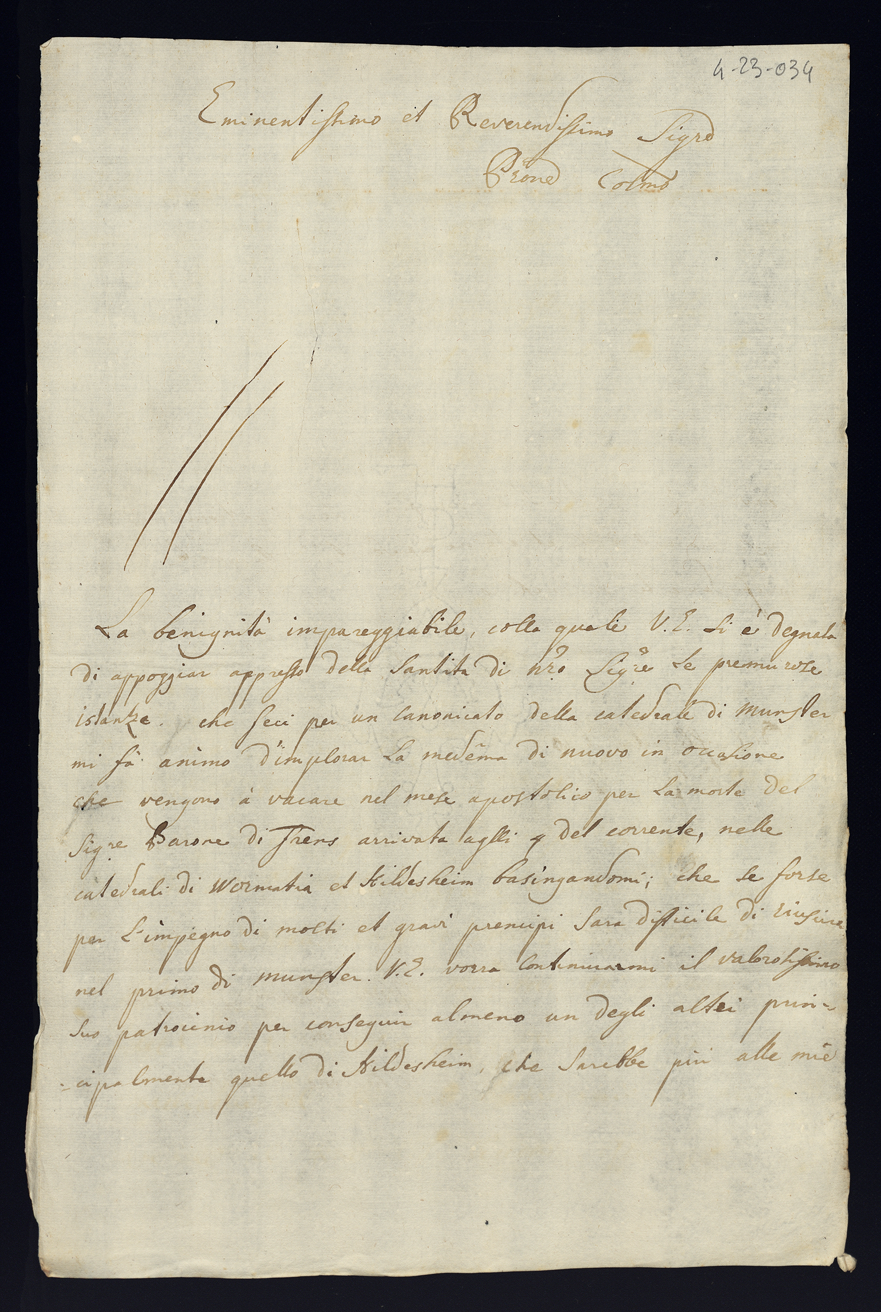 4-23-034
Eminentissimo et Reverendissimo Sigre
Prone Colmo
La benignità impareggiabile, colla quale V.E. si è degnata
di appoggiar appresso della Santità di nro Sigre le premurose
istanze. che feci per un canonicato della catedrale di Munster
mi fà animo d'implorar la medema di nuovo in occasione
che vengono à vacare nel mese apostolico per la morte del
Sigre Barone di Frens arrivata aglli 9 del corrente, nelle
catedrali di Wormatia et Hildesheim basingandomi; che se forse
per l'impegno di molti et gravi prencipi sara difficile di riuscire
nel primo di Munster. V.E. vorra continuarmi il valorosissimo
suo patrocinio per conseguir almeno un degli altri prin=
=cipalmente quello di Hildesheim, che sarebbe più alle mie